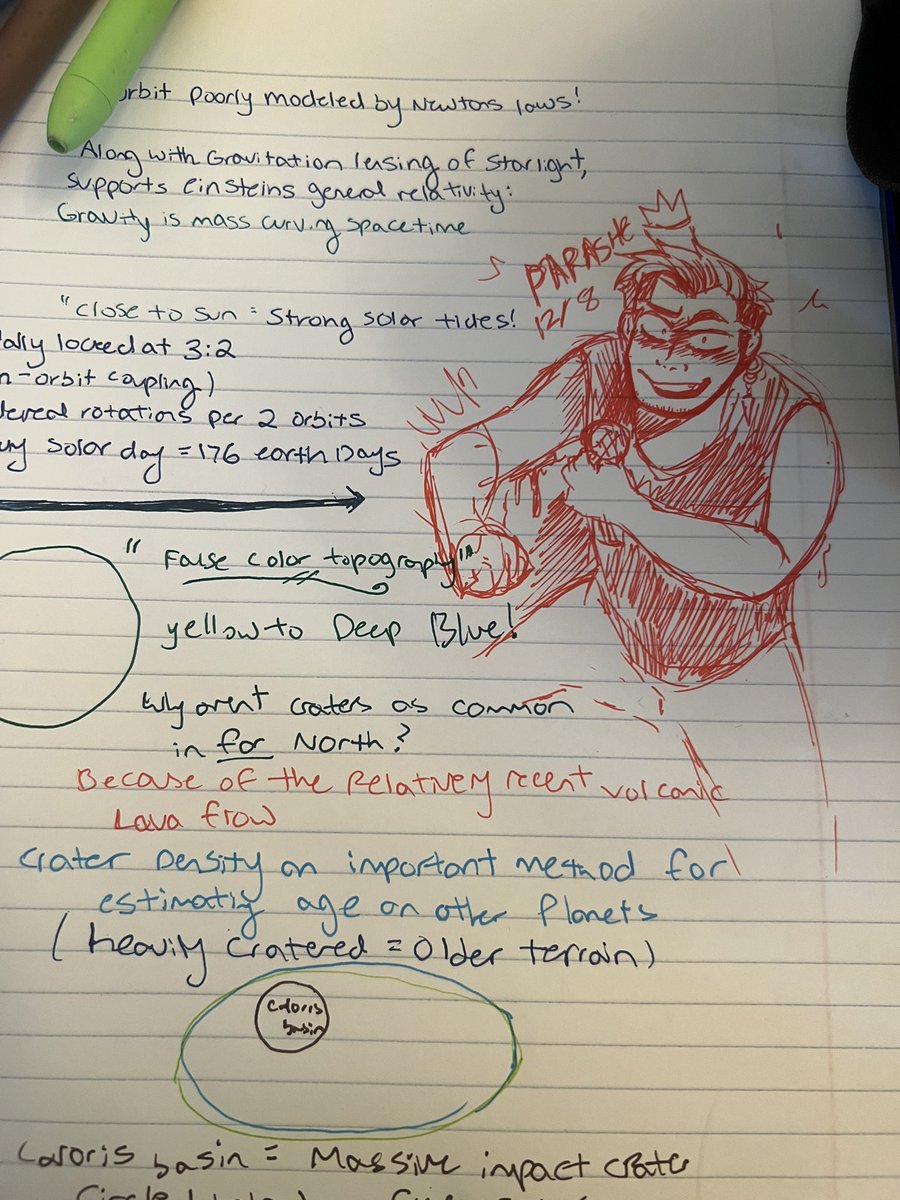 orbit poorly modeled by Newtons laws!
Along with Gravitation lensing of starlight,
supports Einsteins general relativity:
Gravity is mass curving spacetime
PARASHE
12/8
"close to sun = Strong solar tides!
dally locked at 3:2
n-orbit coupling)
dereal rotations per 2 orbits
ury solar day = 176 earth Days
" False color topography"
yellow to Deep Blue!
Why arent craters as common
in far North?
Becase of the Relatively recent volcanic
Lava flow
Crater Density an important method for
estimating age on other Planets
(heavily cratered = Older terrain)
Caloris
basin
Caloris basin = Massive impact crater